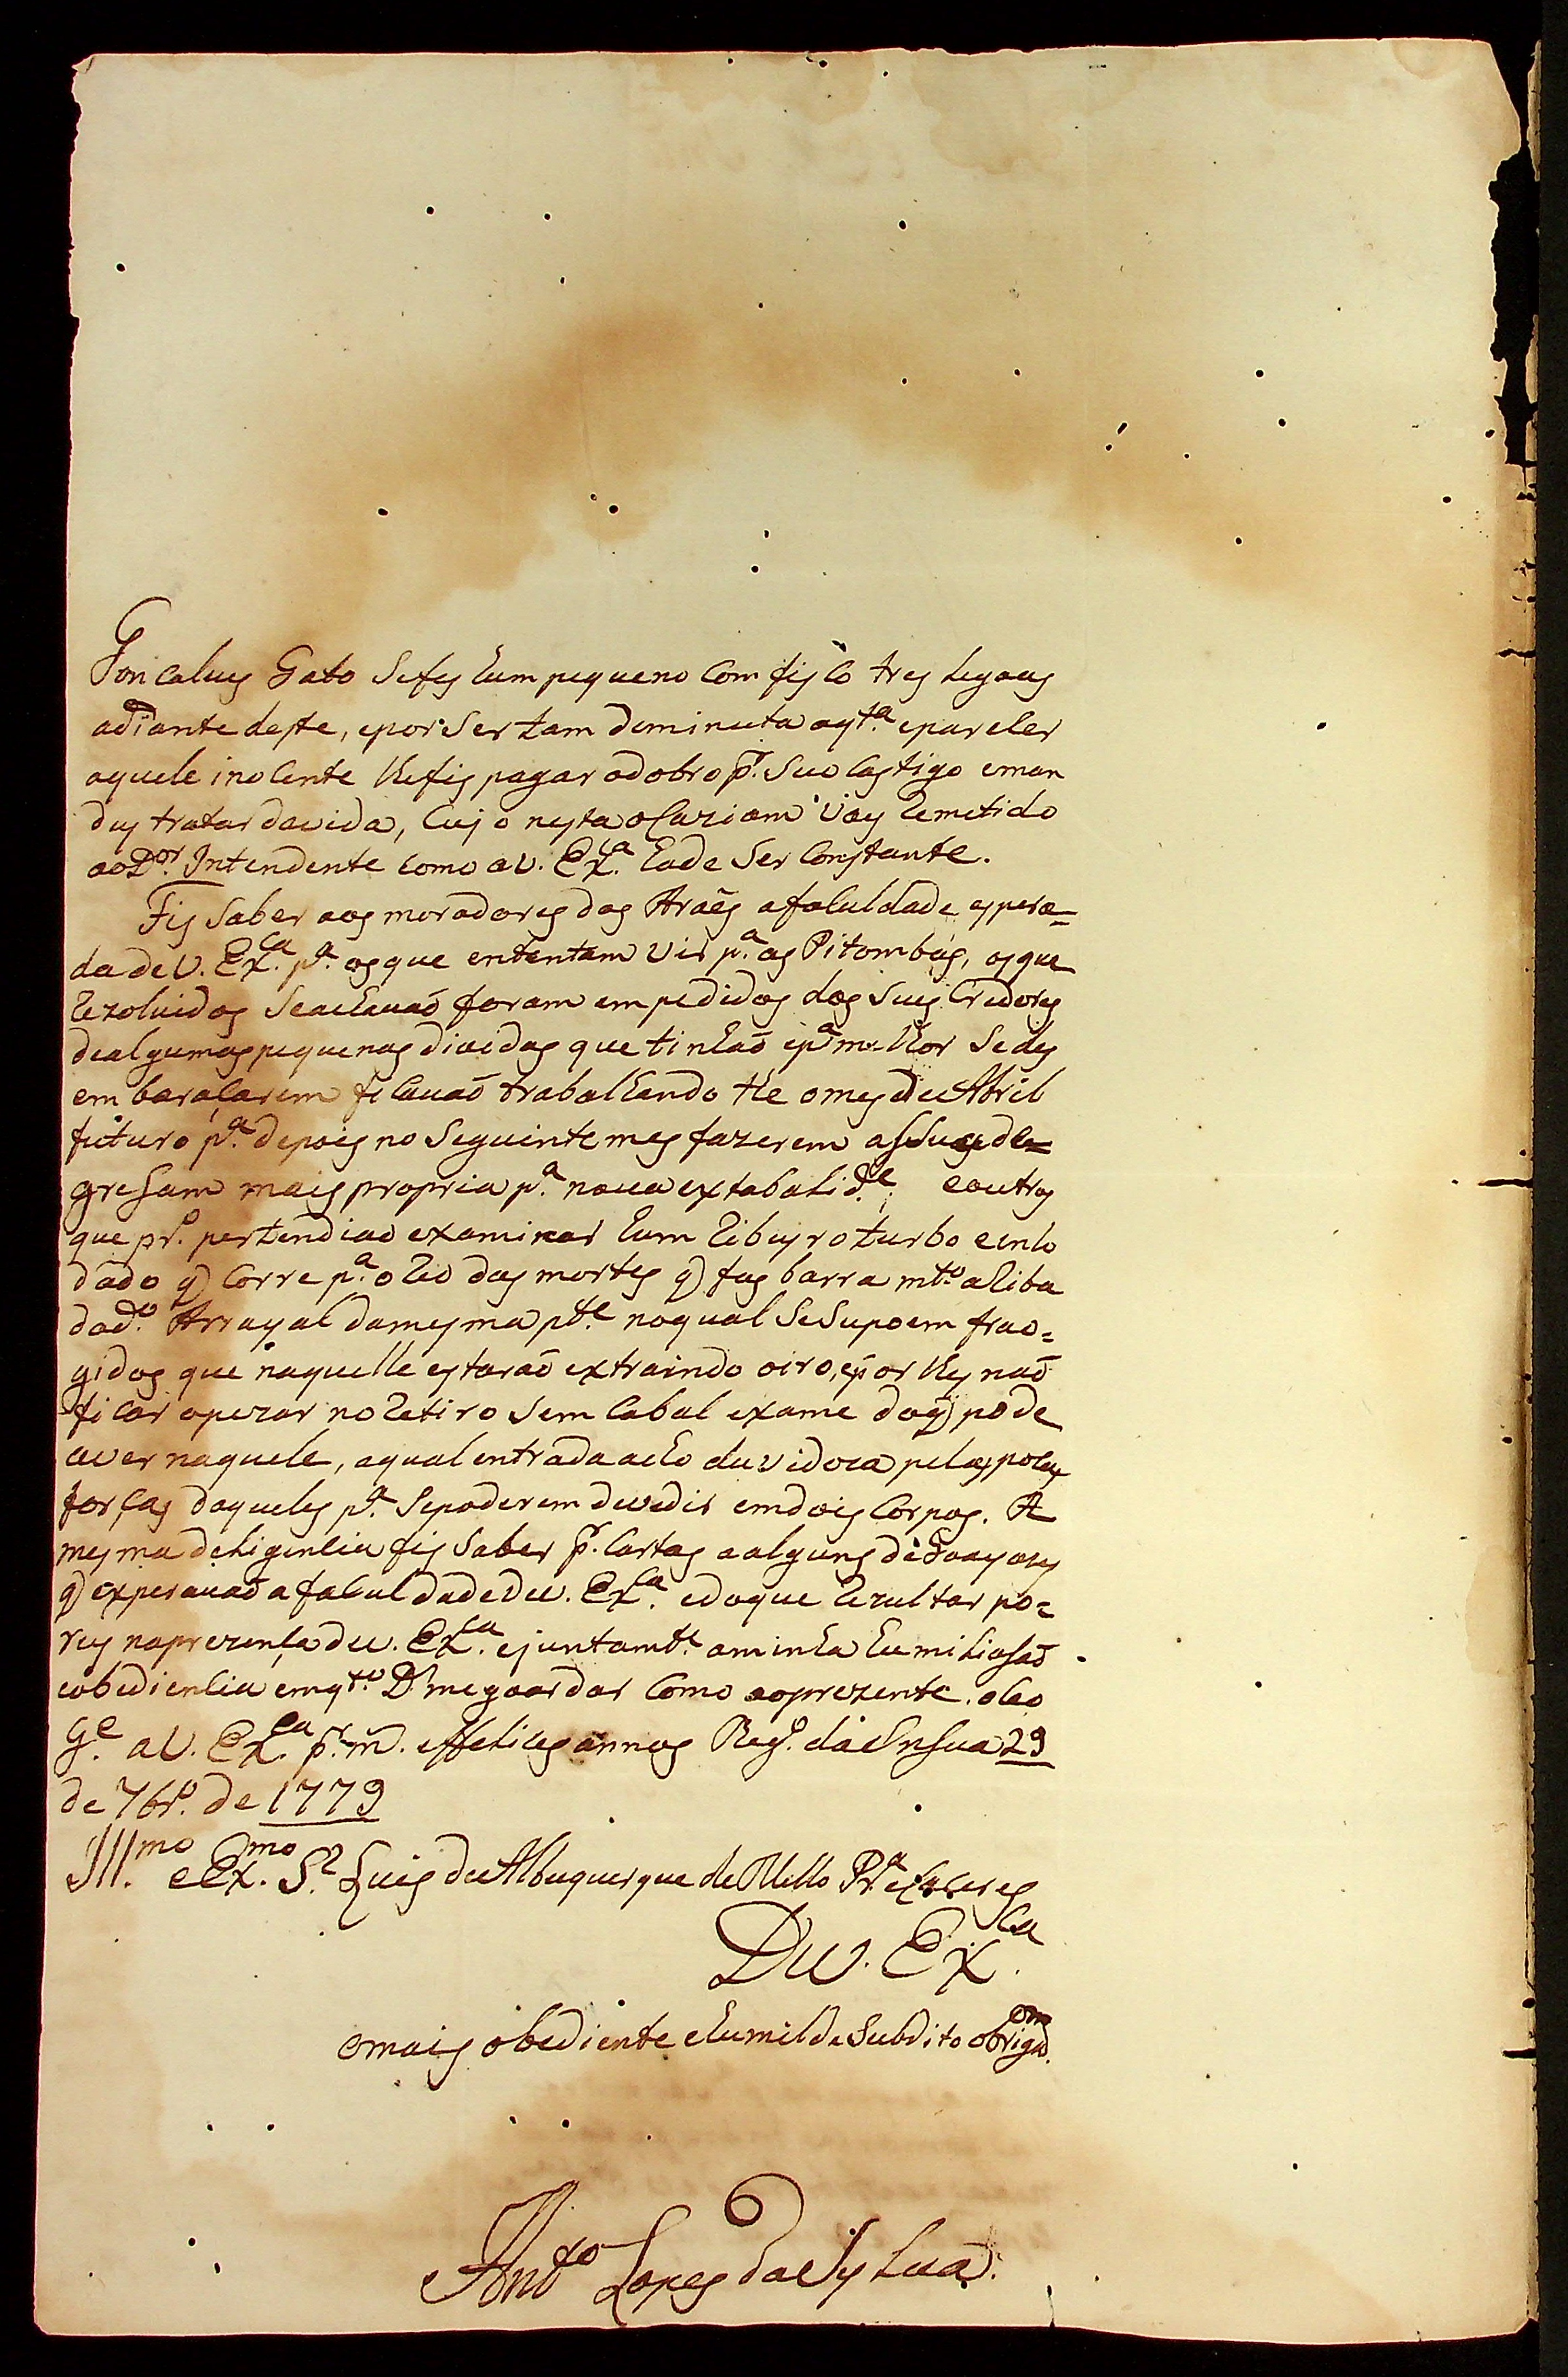 Goncalues Gato Sefes hum pequeno Comfisco tres Legoas
adiante deste, epor Ser tam deminuta aqt.ª epareser
aquele inocente lhefis pagar odobro p.r Seo Castigo eman
dey tratar davida, Cujo nesta ocaziam vay Remetido
aoD.or Intendente como aV. Ex.ca hade Ser Constante.
Fis Saber aos moradores dos Araẽs afaculdade espera=
da deV. Ex.ca p.ª os que ententam vir p.ª as Pitombas, osque
Rezolvidos Seachauaõ foram empedidos dos Seus Credores
dealgumas pequenas dividas que tinhaõ ep.ª melhor Sedes
embaraçarem ficauaõ trabalhando the omes deAbril
futuro p.ª depois no Seguinte mes fazerem assuade=
gresam mais propria p.ª noua extabalid.e eoutros
que pr.º pertendiaõ examinar hum Ribeyro turbo eenlo
dado q̃ Corre p.ª oRio das mortes q̃ fas barra mt.º aRiba
dod.º Arrayal damesma pt.e noqual SeSupoem frao=
gidos que naquelle estaraõ extraindo oiro, epor lhes naõ
ficar apezar noRetiro Sem Cabal exame doq̃ pode
aver naquele, aqual entrada acho duvidoza pelas poucas
forças daqueles p.ª Sepoderem devedir emdois Corpos. A
mesma deligencia fis Saber p.r Cartas aalguns deGoayazes
q̃ experauaõ afaculdade deV. Ex.ca edoque Rezultar po=
rey naprezença deV. Ex.ca ejuntamt.e aminha humiliasaõ
eobediencia emqt.º D.s meguardar Como aoprezente. oCeo
G.e aV. Ex.ca p.r m. effelices annos Reg.º da Insua 29
de 7br.º de 1779
Ill.mo eEx.mo S.r Luis deAlbuquerque deMello Pr.ª eCaceres
DeV. Ex.ca
omais obediente ehumilde Subdito obrigad.mo
Ant.º Lopes daSylua.